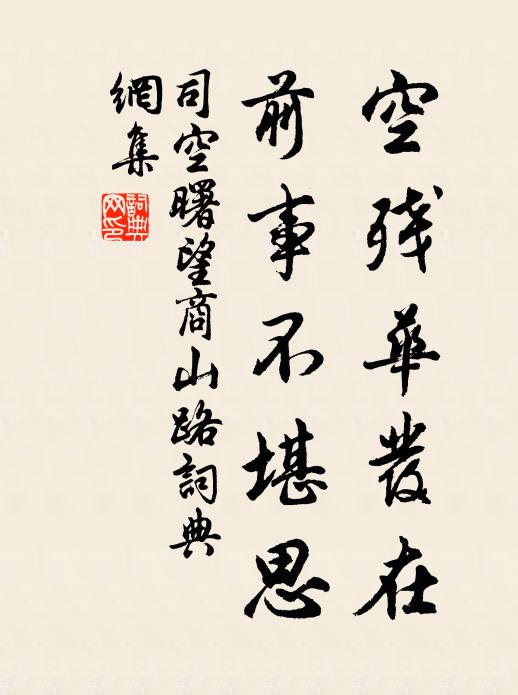 空残華發在
前事不堪思
司空曙望商山路詞典
網集
詞典
网印